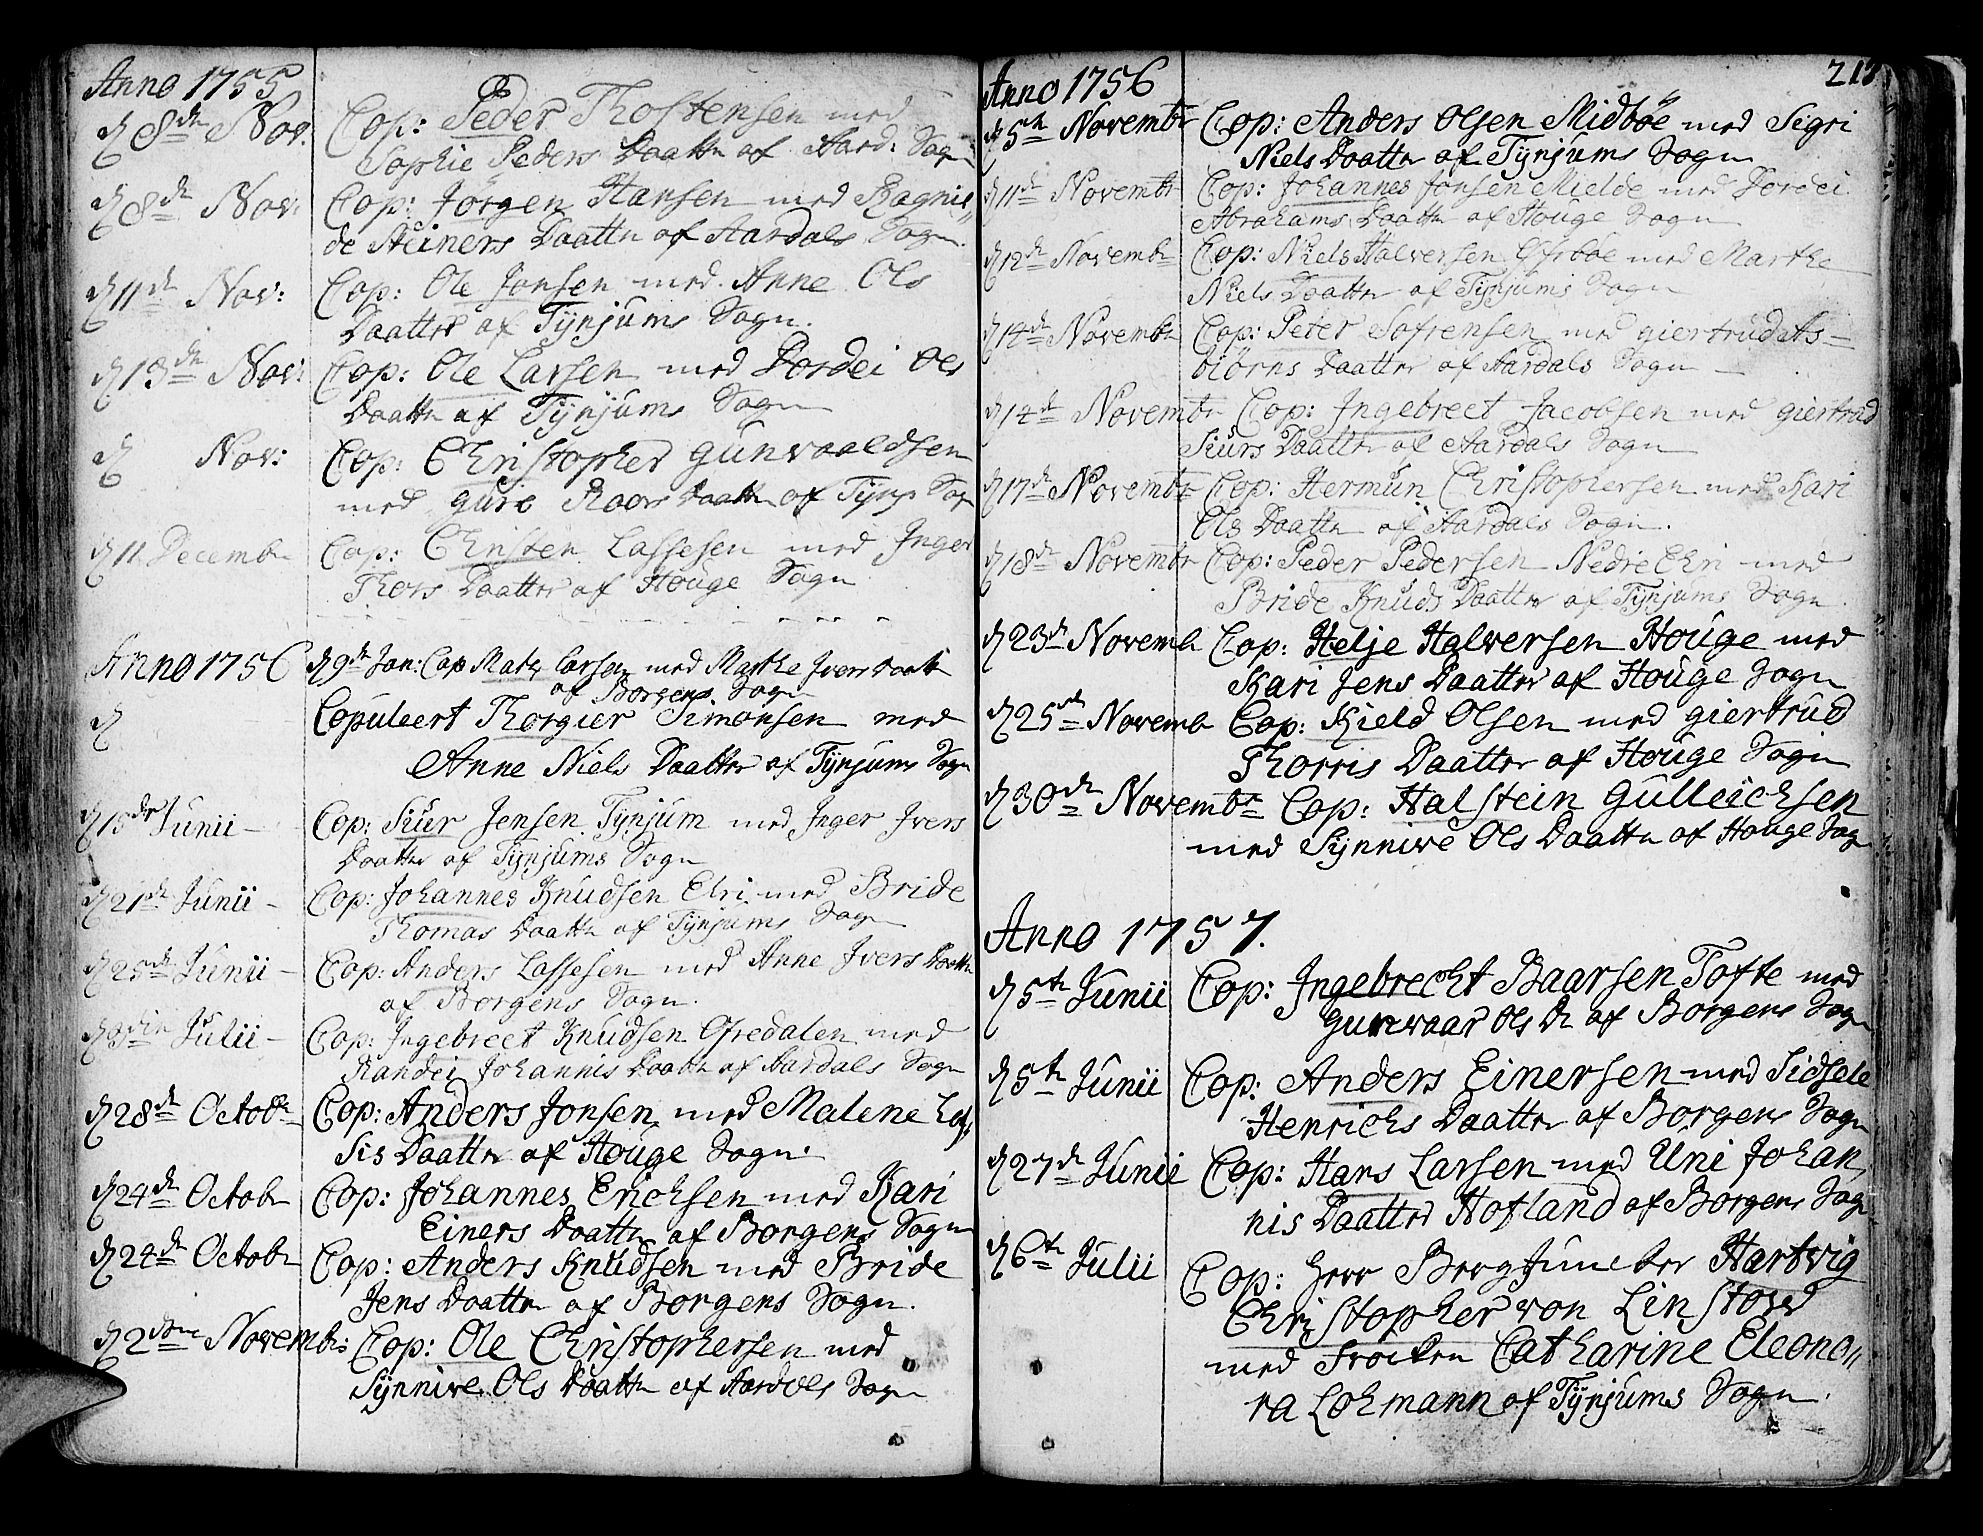 Anno 1755
d 8de Nov. Cop: Peder Thostensen med
Sophie Peders Daatter af Aard: Sogn
d 8de Nov: Cop: Jörgen Hansen med Ragnil„
de Steiners Daatter af Aardals Sogn.
d 11de Nov: Cop: Ole Jonsen med Anne Ols
Daatter af Tÿnjums Sogn.
d 13de Nov: Cop: Ole Larsen med Dordei Ols
Daatter af Tÿnjums Sogn
d Nov: Cop: Christopher Gunvaaldsen
med Gurie Roars Daatter af Tÿnj Sogn
d 11 Decembr Cop: Christen Lassesen med Inger
Thors Daatter af Houge Sogn
Anno 1756 d 9de Jan: Cop Mats Larsen med Marthe Ivers Daatter
af Borgens Sogn
d Copuleert Thorgier Simonsen med
Anne Niels Daatter af Tÿnjums Sogn
d 15de Junii – Cop: Siur Jensen Tÿnjum med Inger Ivers
Daatter af Tÿnjums Sogn
d 21de Junii – Cop: Johannes Knudsen Elri med Bride
Thomas Daatter af Tÿnjums Sogn
d 25de Junii – Cop: Anders Lassesen med Anne Ivers Daatter
af Borgens Sogn.
d 8de Julii – Cop: Ingebreet Knudsen Ofredalen med
Randei Johannis Daatter af Aardals Sogn
d 28de Octobr Cop: Anders Jonsen med Malene Las„
sis Daatter af Houge Sogn.
d 24de Octobr Cop: Johannes Erichsen med Kari
Einers Daatter af Borgens Sogn
d 24de Octobr Cop: Anders Knudsen med Bride
Jens Daatter af Borgens Sogn.
d 2den Novembr: Cop: Ole Christophersen med
Sÿnnive Ols Daatter af Aardals Sogn
217
Anno 1756
d 5te Novembr Cop: Anders Olsen Midböe med Sigri
Niels Daatter af Tÿnjums Sogn
d 11de Novembr Cop: Johannes Jonsen Mielde med Dordei
Abrahams Daatter af Houge Sogn
d 12te Novembr Cop: Niels Halversen Ÿsböe med Marthe
Niels Daatter af Tÿnjums Sogn
d 14de Novembr Cop: Peter Sofrensen med Giertrud Als–
biörns Daatter af Aardals Sogn –
d 14de Novembr Cop: Ingebreet Jacobsen med Giertrud
Siurs Daatter af Aardals Sogn
d 17de Novembr Cop: Hermun Christophersen med Kari
Ols Daatter af Aardals Sogn.
d 18de Novembr Cop: Peder Pedersen Nedre Eri med
Bride Knuds Daatter af Tÿnjums Sogn.
d 23de Novemb Cop: Helje Halversen Houge med
Kari Jens Daatter af Houge Sogn
d 25de Novemb Cop: Kield Olsen med Giertrud
Thorris Daatter af Houge Sogn
d 30de Novembr Cop: Halstein Gulleichsen
med Sÿnnive Ols Daatter af Houge Sogn
Anno 1757.
d 5te Junii Cop: Ingebrecht Baarsen Tofte med
Gunvaar Ols Dr af Borgens Sogn
d 5te Junii Cop: Anders Einersen med Sidsele
Henrichs Daatter af Borgens Sogn
d 27de Junii Cop: Hans Larsen med Uni Johan
nis Daatter Hofland af Borgens Sogn
d 6te Julii Cop: Herr Berg Juncker Hartvig
Christopher von Linstow
med Fröiken Catharine Eleono„
ra Lohmann af Tÿnjums Sogn.